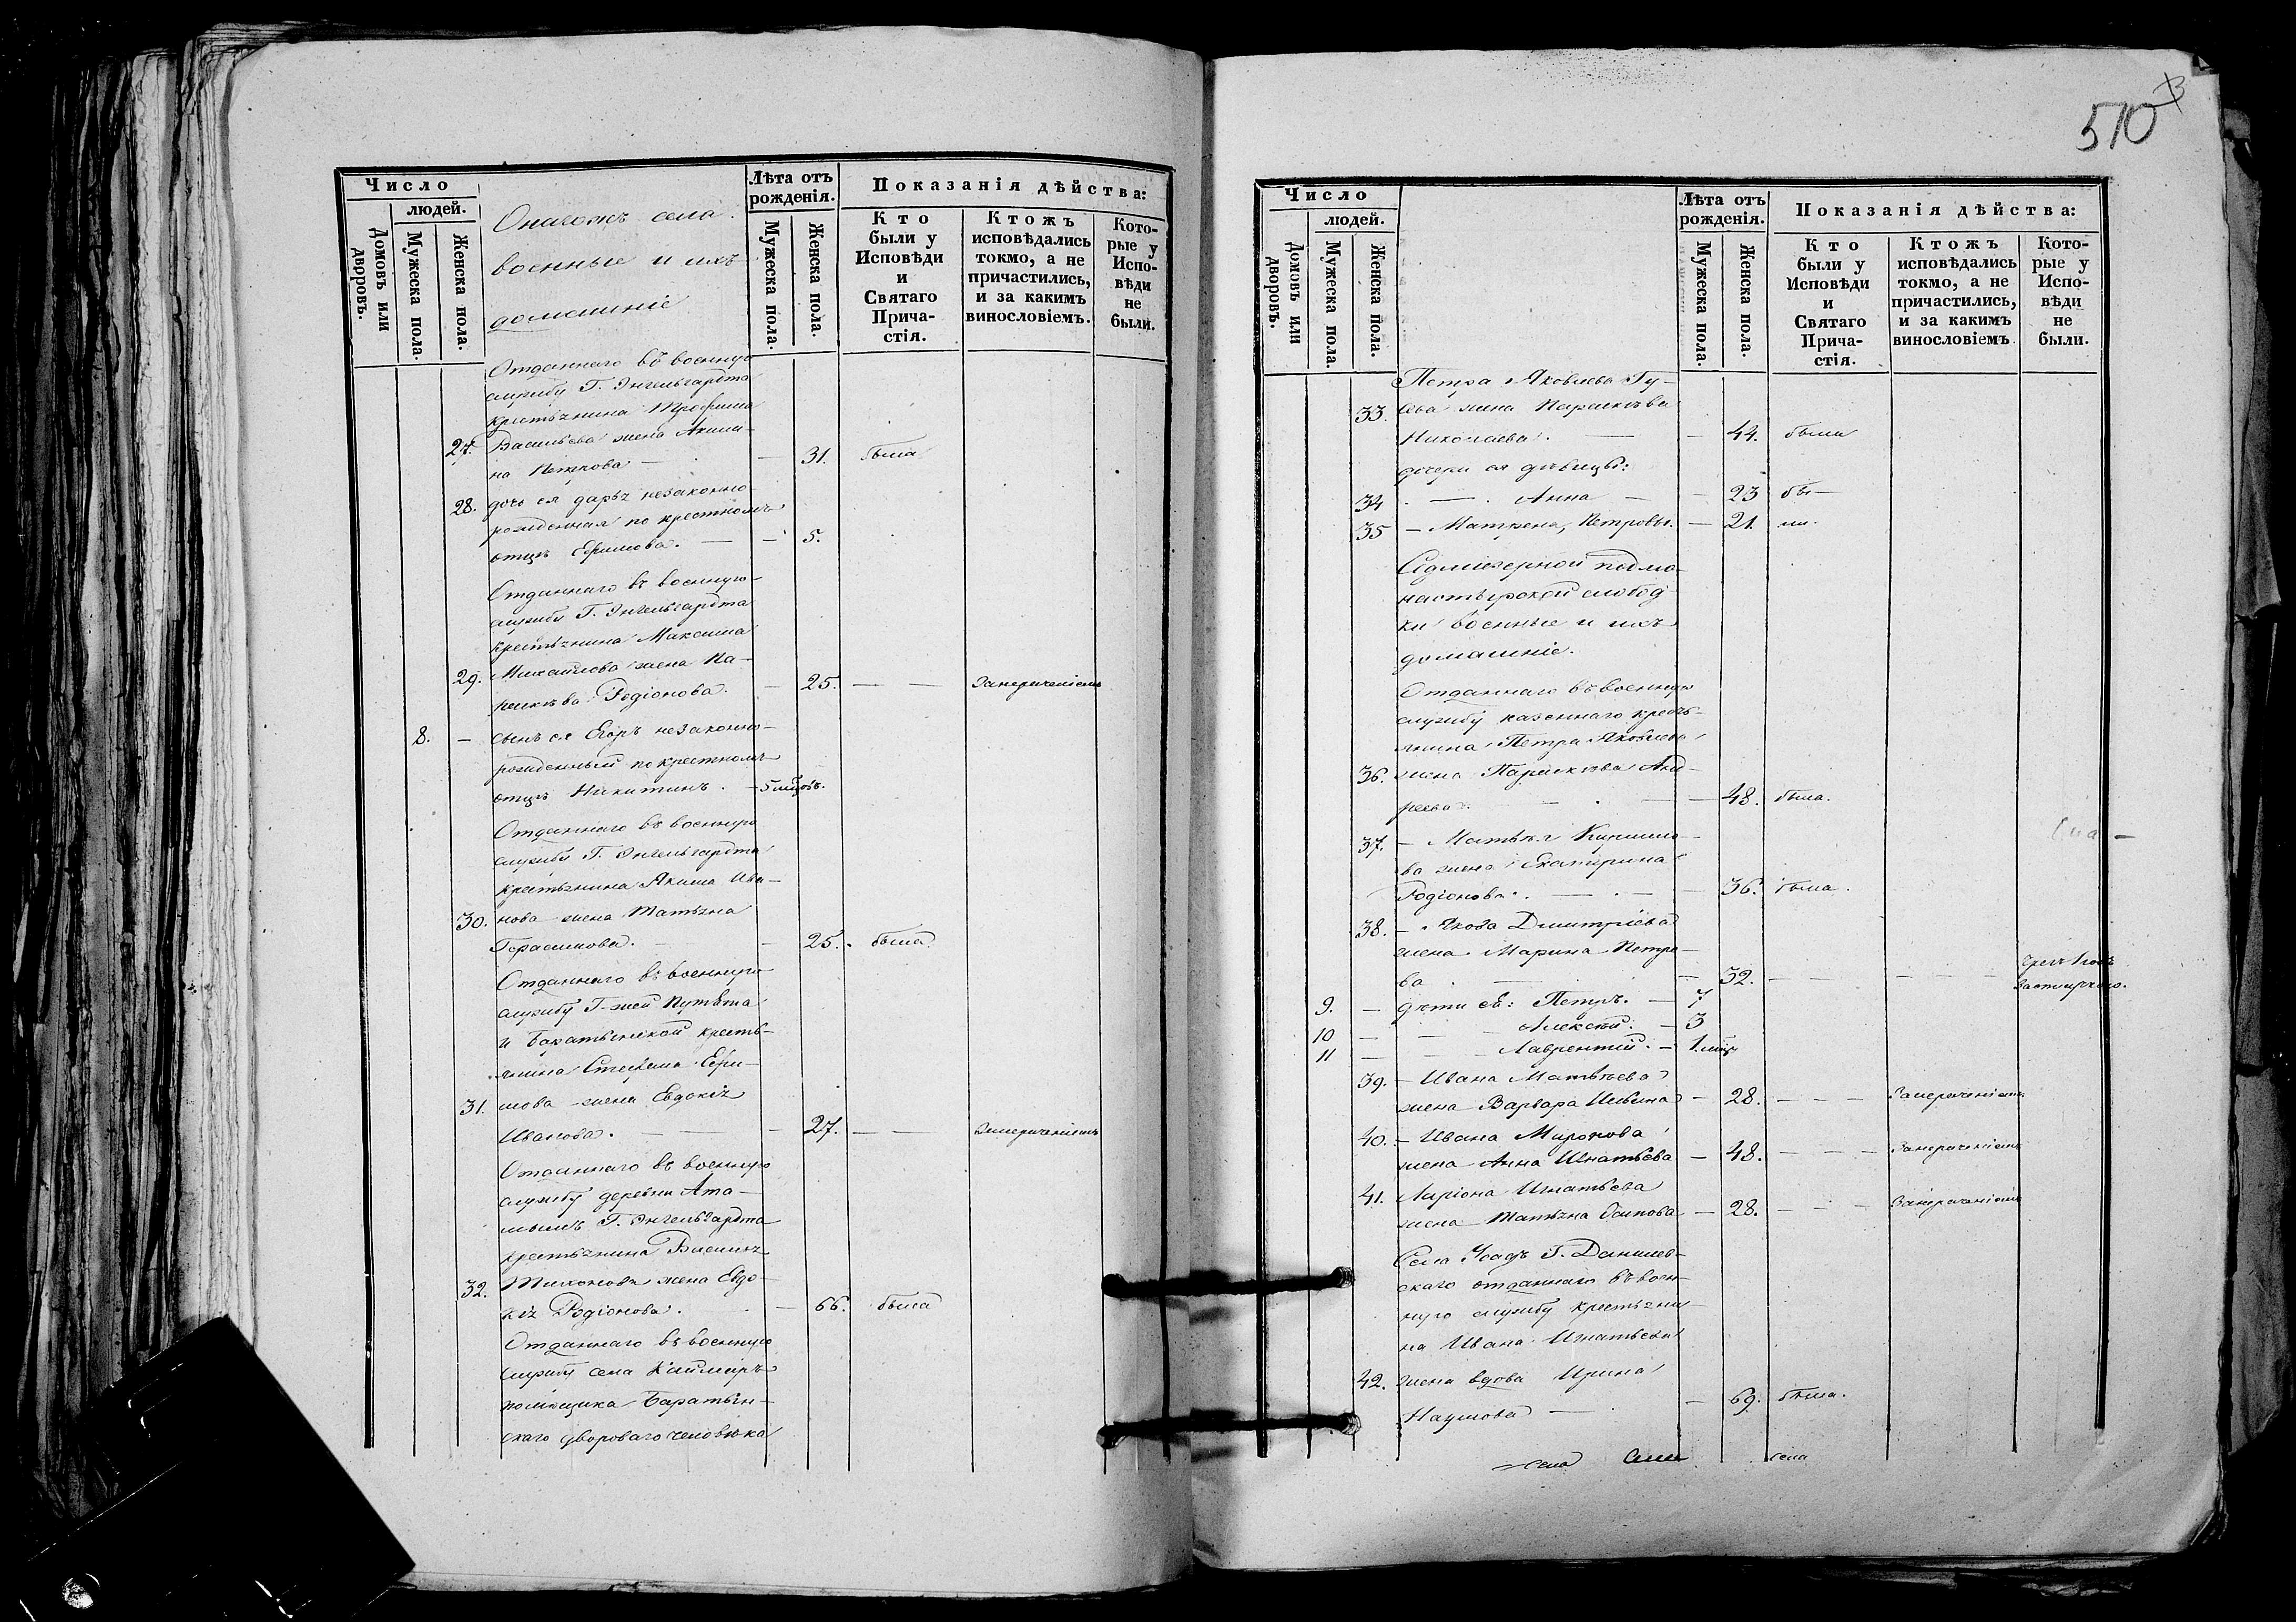 Число
людей.
Домовъ или дворовъ.
Мужеска пола.
Женска пола.
Онагожъ села
военные и ихъ
домашніе
Лѣта отъ
рожденія.
Мужеска пола.
Женска пола.
Показанія дѣйства:
Кто
были у
Исповѣди
и
Святаго
Прича-
стія.
Ктожъ
исповѣдались
токмо, а не
причастились,
и за какимъ
винословіемъ.
Кото-
рые у
Испо-
вѣди
не
были.
Отданнаго въ военную
службу Г. Энгельгардта
крестьянина Трофима
27. Васильева жена Акили-
на Петрова — — 31. была
28. дочь ея Дарья незаконно-
рожденная по крестномъ
отцѣ Ефимова. — — 5.
Отданнаго въ военную
службу Г. Энгельгардта
крестьянина Максима
29. Михайлова жена Па-
раскѣва Родіонова. — 25. — — Занераченіемъ
8. — сынъ ея Егоръ незаконно-
рожденный по крестномъ
отцѣ Никитинъ. — 5 мцовъ.
Отданнаго въ военную
службу Г. Энгельгардта
крестьянина Якима Ива-
30. нова жена Татьяна
Герасимова. — 25. была
Отданнаго въ военную
службу Г-жей
и Баратынской кресть-
янина Степана Ефи-
31. мова жена Евдокія
Иванова. — — 27. — — Занераченіемъ
Отданнаго въ военную
службу деревни Ата-
мышъ Г. Энгельгардта
крестьянина Василья
32. Тихонова жена Евдо-
кія Родіонова. — 66. была
Отданнаго въ военную
службу села Каймаръ
помѣщика Баратын-
скаго двороваго человѣка
510
Число
людей.
Домовъ или дворовъ.
Мужеска пола.
Женска пола.
Лѣта отъ
рожденія.
Мужеска пола.
Женска пола.
Показанія дѣйства:
Кто
были у
Исповѣди
и
Святаго
Прича-
стія.
Ктожъ
исповѣдались
токмо, а не
причастились,
и за какимъ
винословіемъ.
Кото-
рые у
Испо-
вѣди
не
были.
Петра Яковлева Гу-
33. сева жена Параскѣва
Николаева. — — 44. была
дочери ея дѣвицы:
34 — Анна — — 23 бы—
35 — Матрена, Петровы. — 21. ли.
Седмиезерной подмо-
настырской слобод
ки военные и ихъ
домашніе.
Отданнаго въ военную
службу казеннаго кресть-
янина Петра Яковлева
36. жена Параскѣва Анд-
реева. — — 48. была.
37. — Матвѣя Кирило-
ва жена Екатерина
Родіонова. — — 36. была.
38. — Якова Дмитріева
жена Марина Петро-
ва — 32. — — —
9. — дѣти ея: Петръ. — 7
10 — — Алексѣй. — 3
11 — — Лаврентій. — 1. мцр
39. — Ивана Матвѣева
жена Варвара Ильина — 28. — — — Занераченіемъ
40. — Ивана Миронова
жена Анна Игнатьева — 48. — — — Занераченіемъ
41. Ларіона Игнатьева
жена Татьяна Осипова — 28. — — — Занераченіемъ
Села Усадъ Г. Данилев-
скаго отданнаго въ воен-
ную службу крестьяни-
на Ивана Игнатьева
42. жена вдова Ирина
Наумова — — 69. была.
села